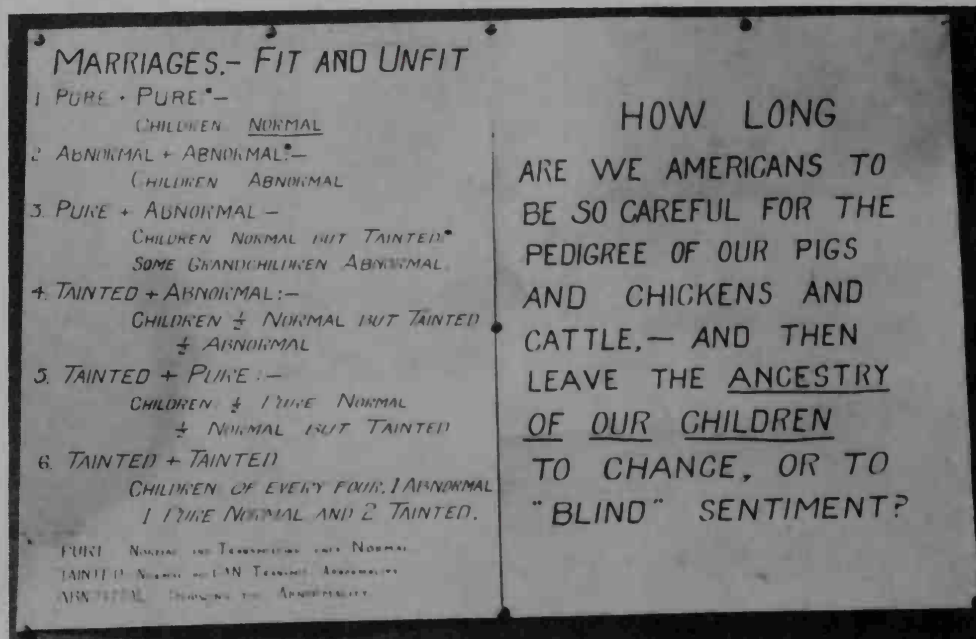 MARRIAGES.- FIT AND UNFIT
1 PURE + PURE:-
CHILDREN NORMAL
2 ABNORMAL + ABNORMAL:-
CHILDREN ABNORMAL
3. PURE + ABNORMAL -
CHILDREN NORMAL BUT TAINTED
SOME GRANDCHILDREN ABNORMAL
4. TAINTED + ABNORMAL:-
CHILDREN ½ NORMAL BUT TAINTED
½ ABNORMAL
5. TAINTED + PURE:-
CHILDREN ½ PURE NORMAL
½ NORMAL BUT TAINTED
6. TAINTED + TAINTED
CHILDREN OF EVERY FOUR, 1 ABNORMAL
1 PURE NORMAL AND 2 TAINTED.
PURE NORMAL AND TRANSMITTING ONLY NORMAL
TAINTED NORMAL CAN TRANSMIT ABNORMALITY
ABNORMAL ABNORMALITY
HOW LONG
ARE WE AMERICANS TO
BE SO CAREFUL FOR THE
PEDIGREE OF OUR PIGS
AND CHICKENS AND
CATTLE,— AND THEN
LEAVE THE ANCESTRY
OF OUR CHILDREN
TO CHANCE, OR TO
"BLIND" SENTIMENT?